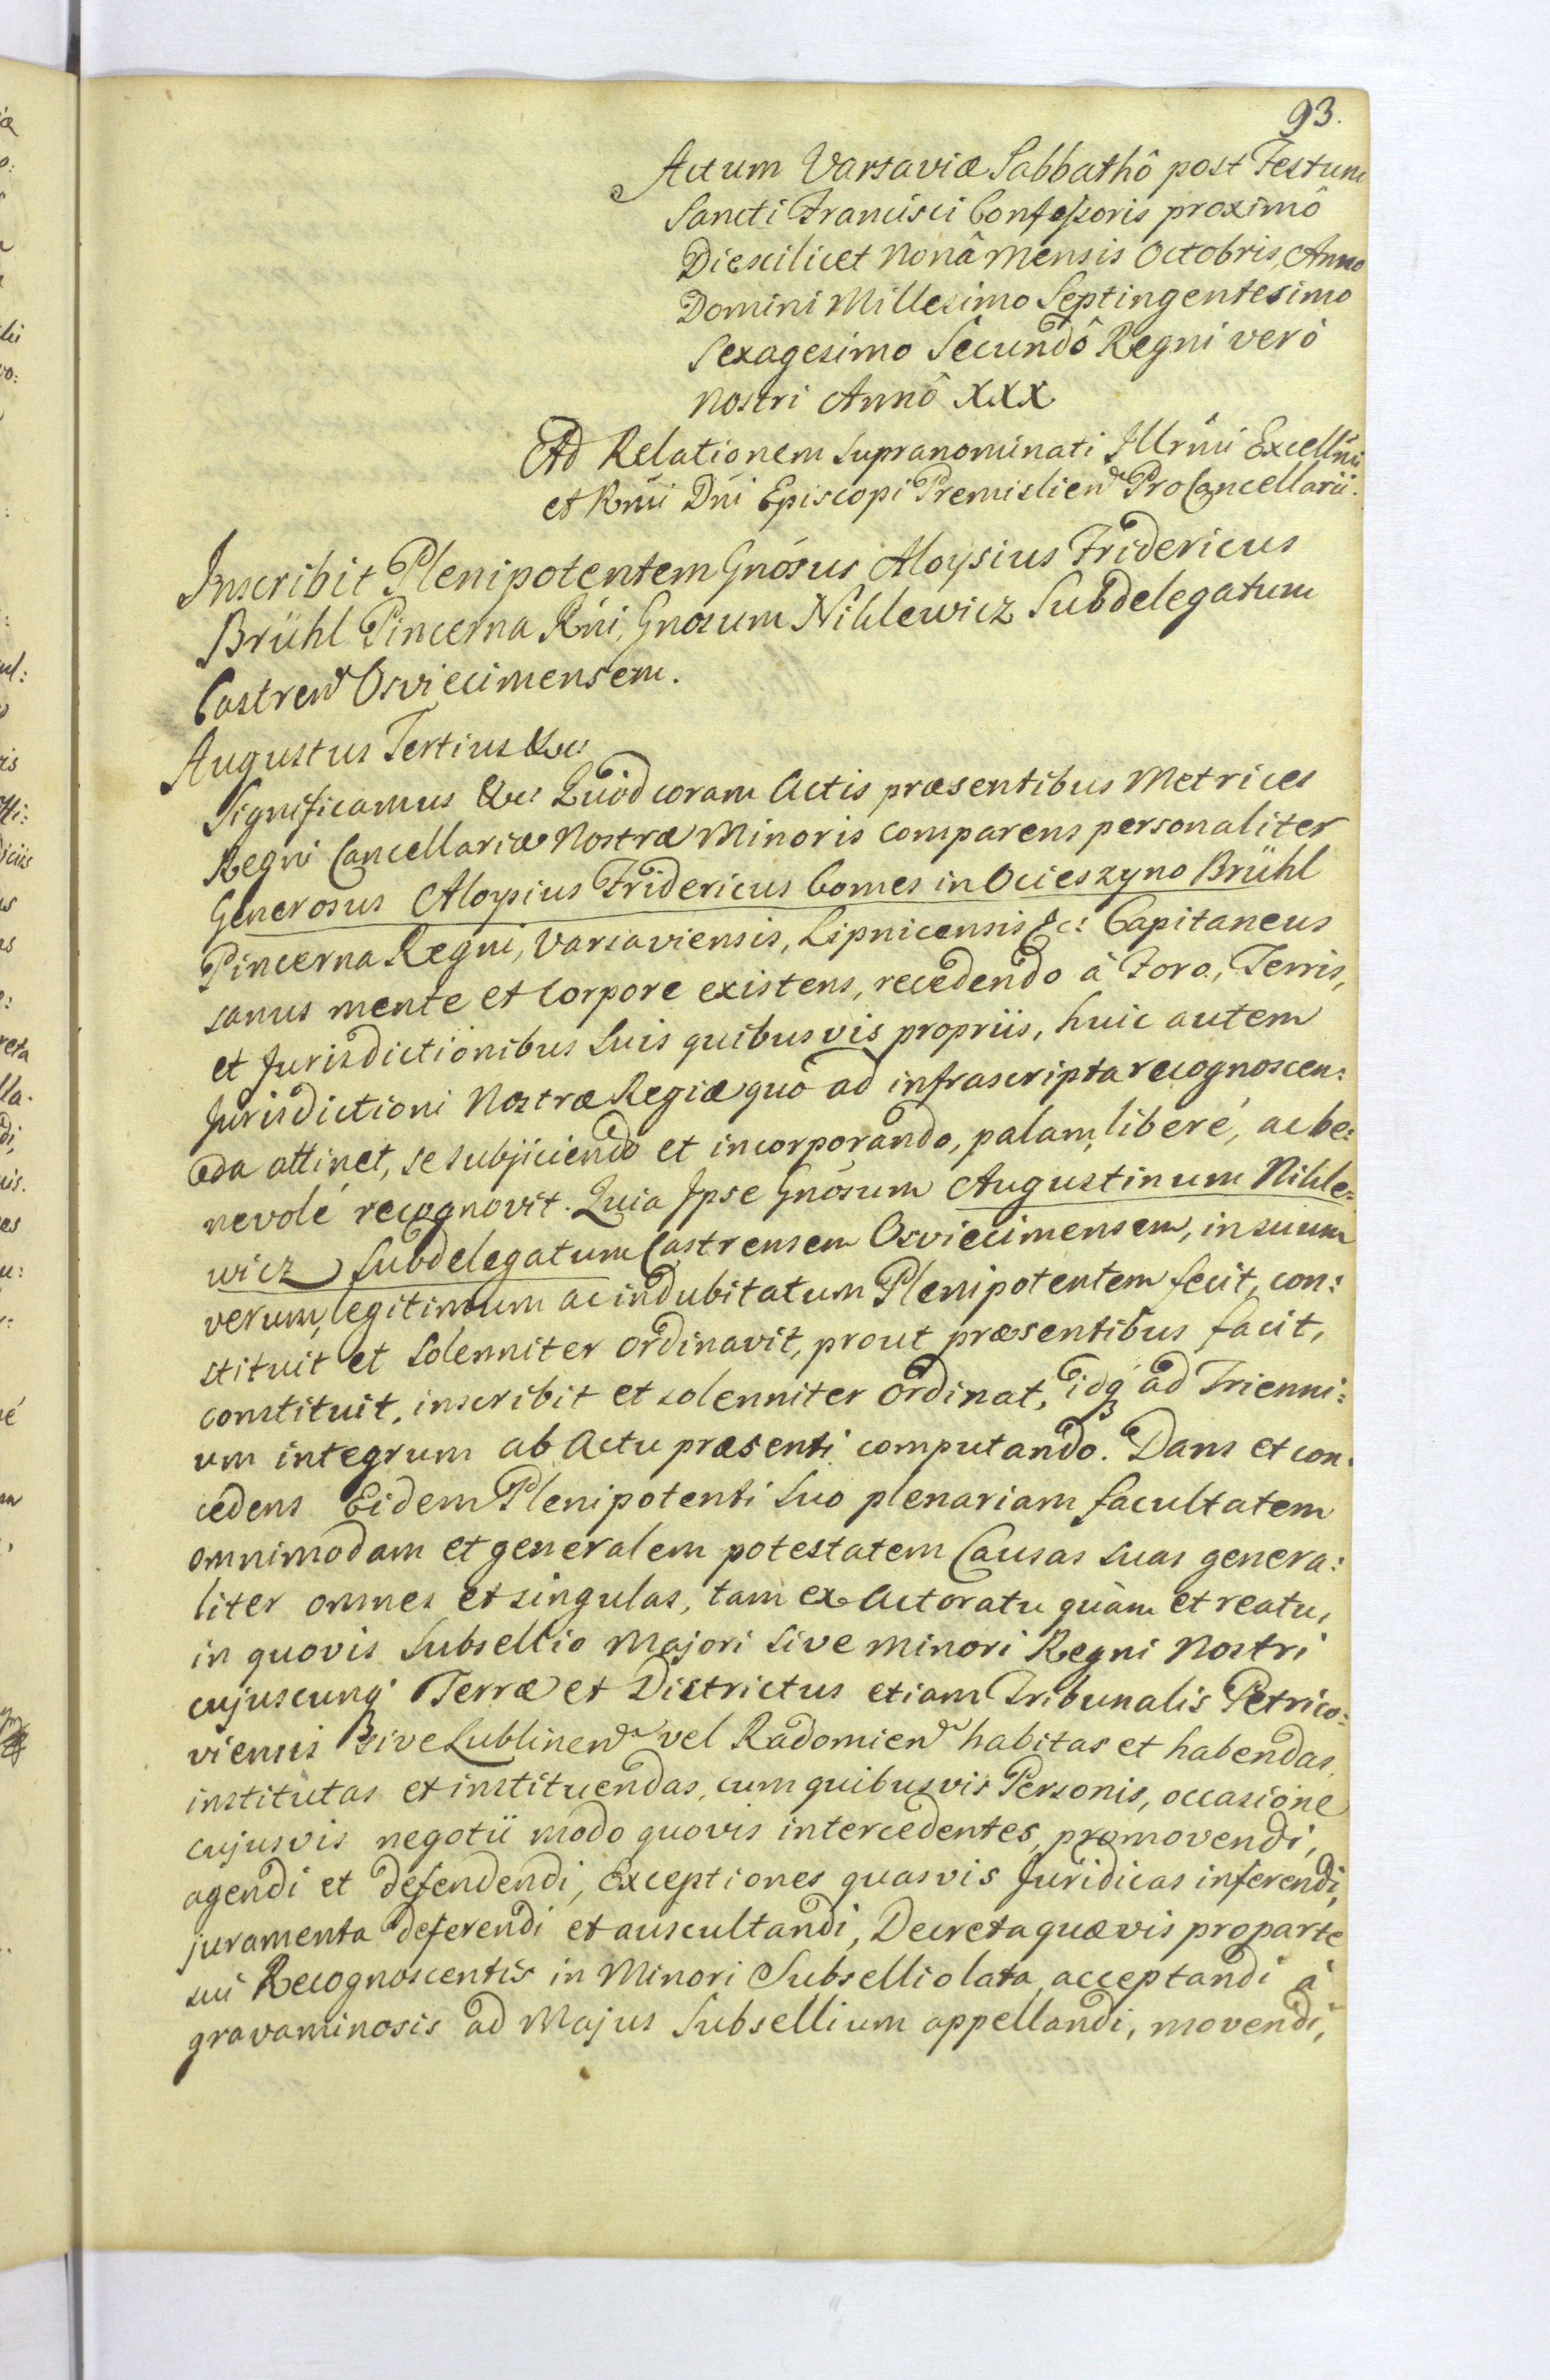 93.
Actum Varsaviæ Sabbathô post Festum
Sancti Francisci Confessoris proximô
Die scilicet Nonâ Mensis Octobris, Anno
Domini Millesimo Septingentesimo
Sexagesimo Secundô Regni verò
Nostri Annô XXX
Ad Relationem supranominati Illrmi Excellmi
et Rmi Dni Episcopi Premislien ProCancellarii.
Inscribit Plenipotentem Gnosus Aloysius Fridericus
Brühl Pincerna Rni, Gnosum Nihlewicz Subdelegatum
Castren Osviecimensem.
Augustus Tertius &c:
Significamus &c: Quòd coram Actis præsentibus Metrices
Regni Cancellariæ Nostræ Minoris comparens personaliter
Generosus Aloysius Fridericus Comes in Ocieszyno Brühl
Pincerna Regni, Varsaviensis, Lipnicensis &c: Capitaneus
sanus mente et Corpore existens, recedendo à Foro, Terris,
et Jurisdictionibus Suis quibusvis propriis, huic autem
Jurisdictioni Nostræ Regiæ quò ad infrascripta recognoscen:
da attinet, se subjiciendo et incorporando, palam, liberé, ac be:
nevolé recognovit. Quia Ipse Gnosum Augustinum Nihle:
wicz Subdelegatum Castrensem Osviecimensem, in suum
verum, legitimum ac indubitatum Plenipotentem fecit, con:
stituit et solenniter ordinavit, prout præsentibus facit,
constituit, inscribit et solenniter ordinat, idq; ad Trienni:
um integrum ab Actu præsenti computando. Dans et con:
cedens Eidem Plenipotenti Suo plenariam facultatem
omnimodam et generalem potestatem Causas suas genera:
liter omnes et singulas, tam ex Actoratu quàm et reatu,
in quovis Subsellio Majori sive Minori Regni Nostri
cujuscunq' Terræ et Districtus etiam Tribunalis Petrico:
viensis sive Lublinen vel Radomien habitas et habendas,
institutas et instituendas, cum quibusvis Personis, occasione
cujusvis negotii modo quovis intercedentes, promovendi,
agendi et defendendi, Exceptiones quasvis Juridicas inferendi,
juramenta deferendi et auscultandi, Decreta quævis pro parte
sui Recognoscentis in Minori Subsellio lata, acceptandi à
gravaminosis ad Majus Subsellium appellandi, movendi,